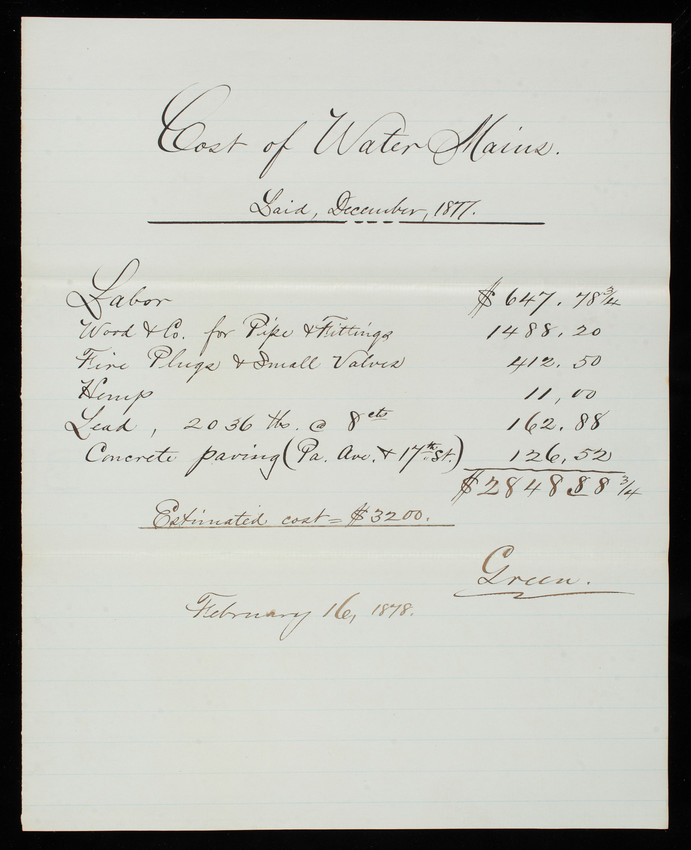 Cost of Water Mains.
Laid, December, 1877.
Labor $647.78 3/4
Wood & Co. for Pipe & Fittings 1488.20
Fire Plugs & Small Valves 412.50
Hemp 11,00
Lead, 2036 lbs. @ 8 cts 162.88
Concrete paving (Pa. Ave. & 17th St.) 126,52
$284888 3/4
Estimated cost = $3200.
Green.
February 16, 1878.